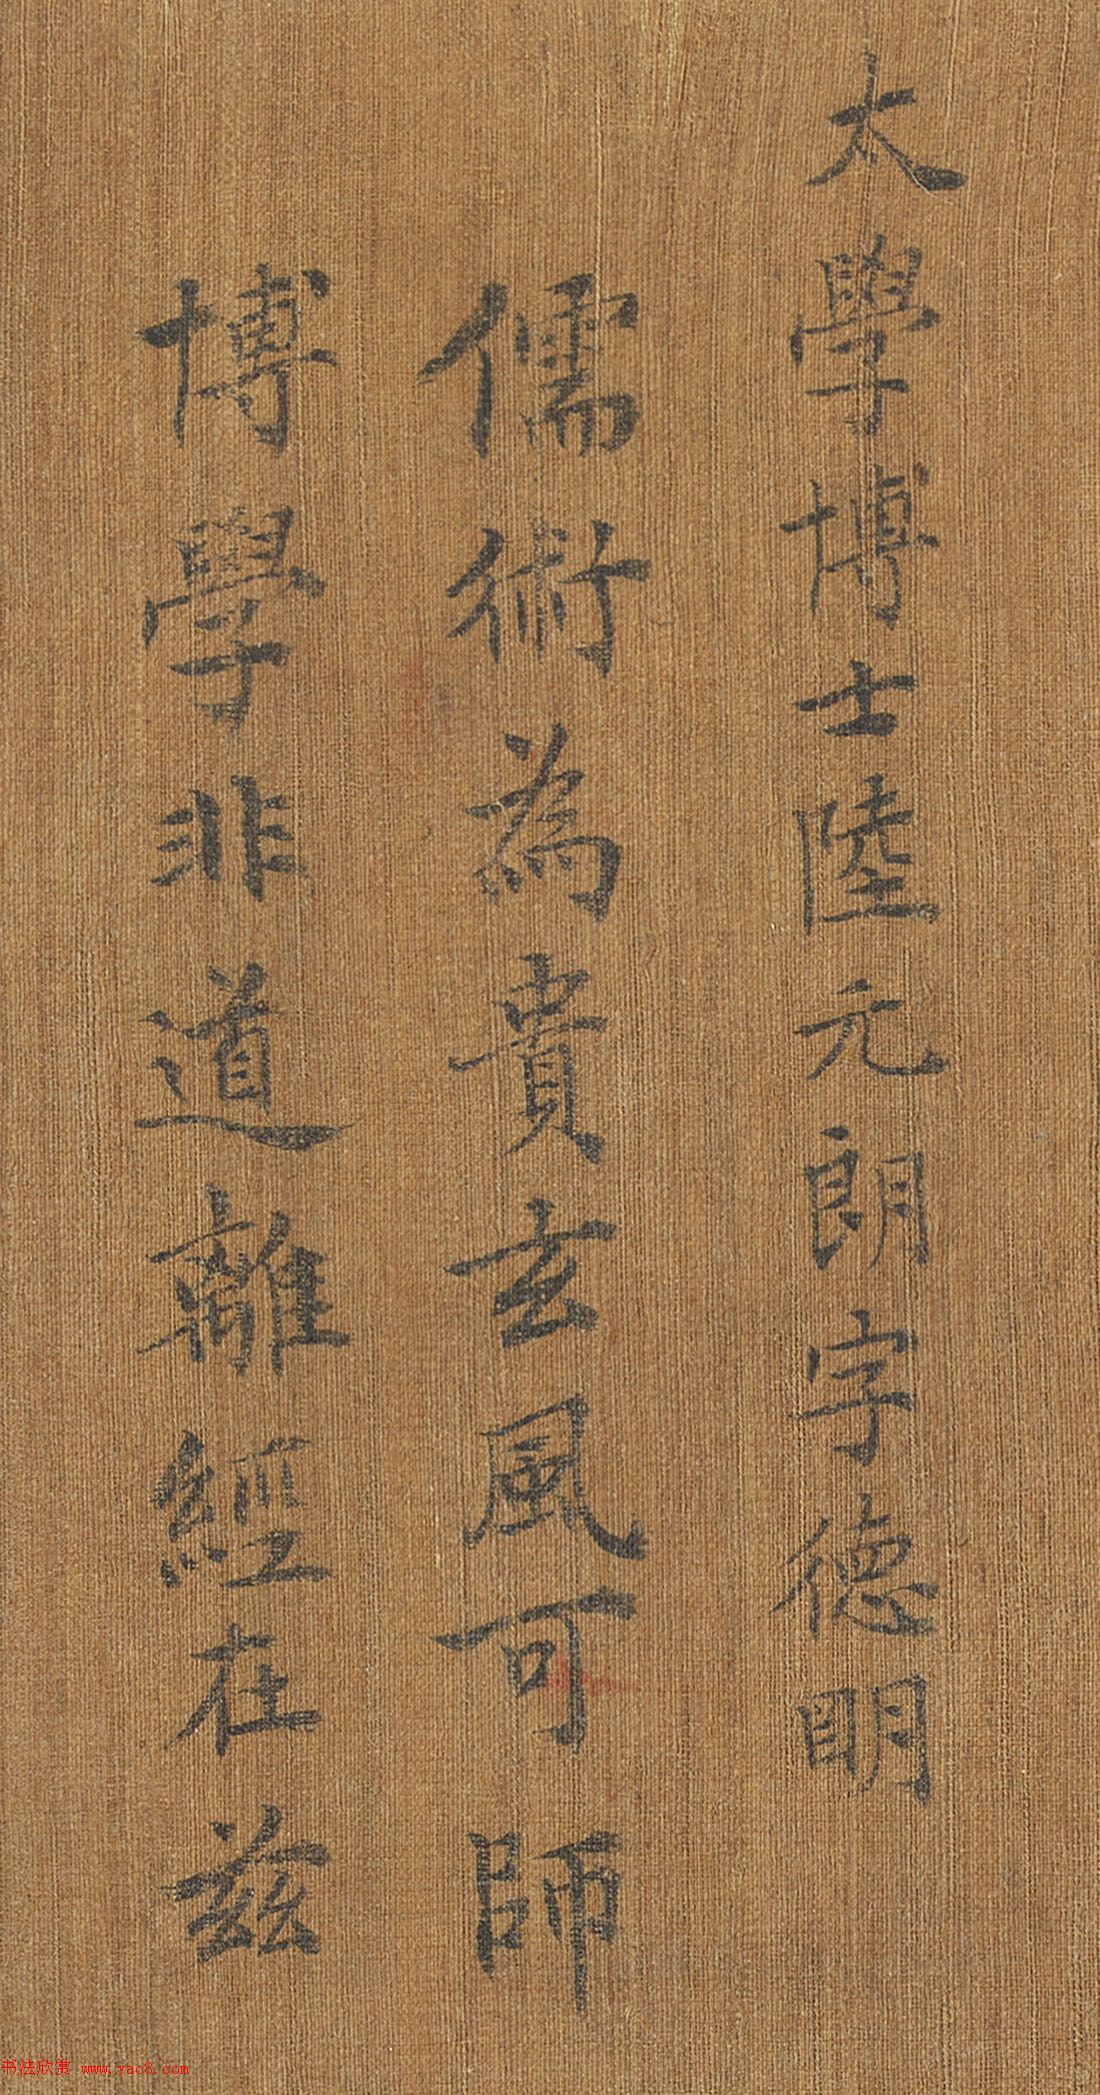 太學博士陸元朗字德明
儒術為貴玄風可師
博學非道離經在兹
书法欣赏 www.yac8.com